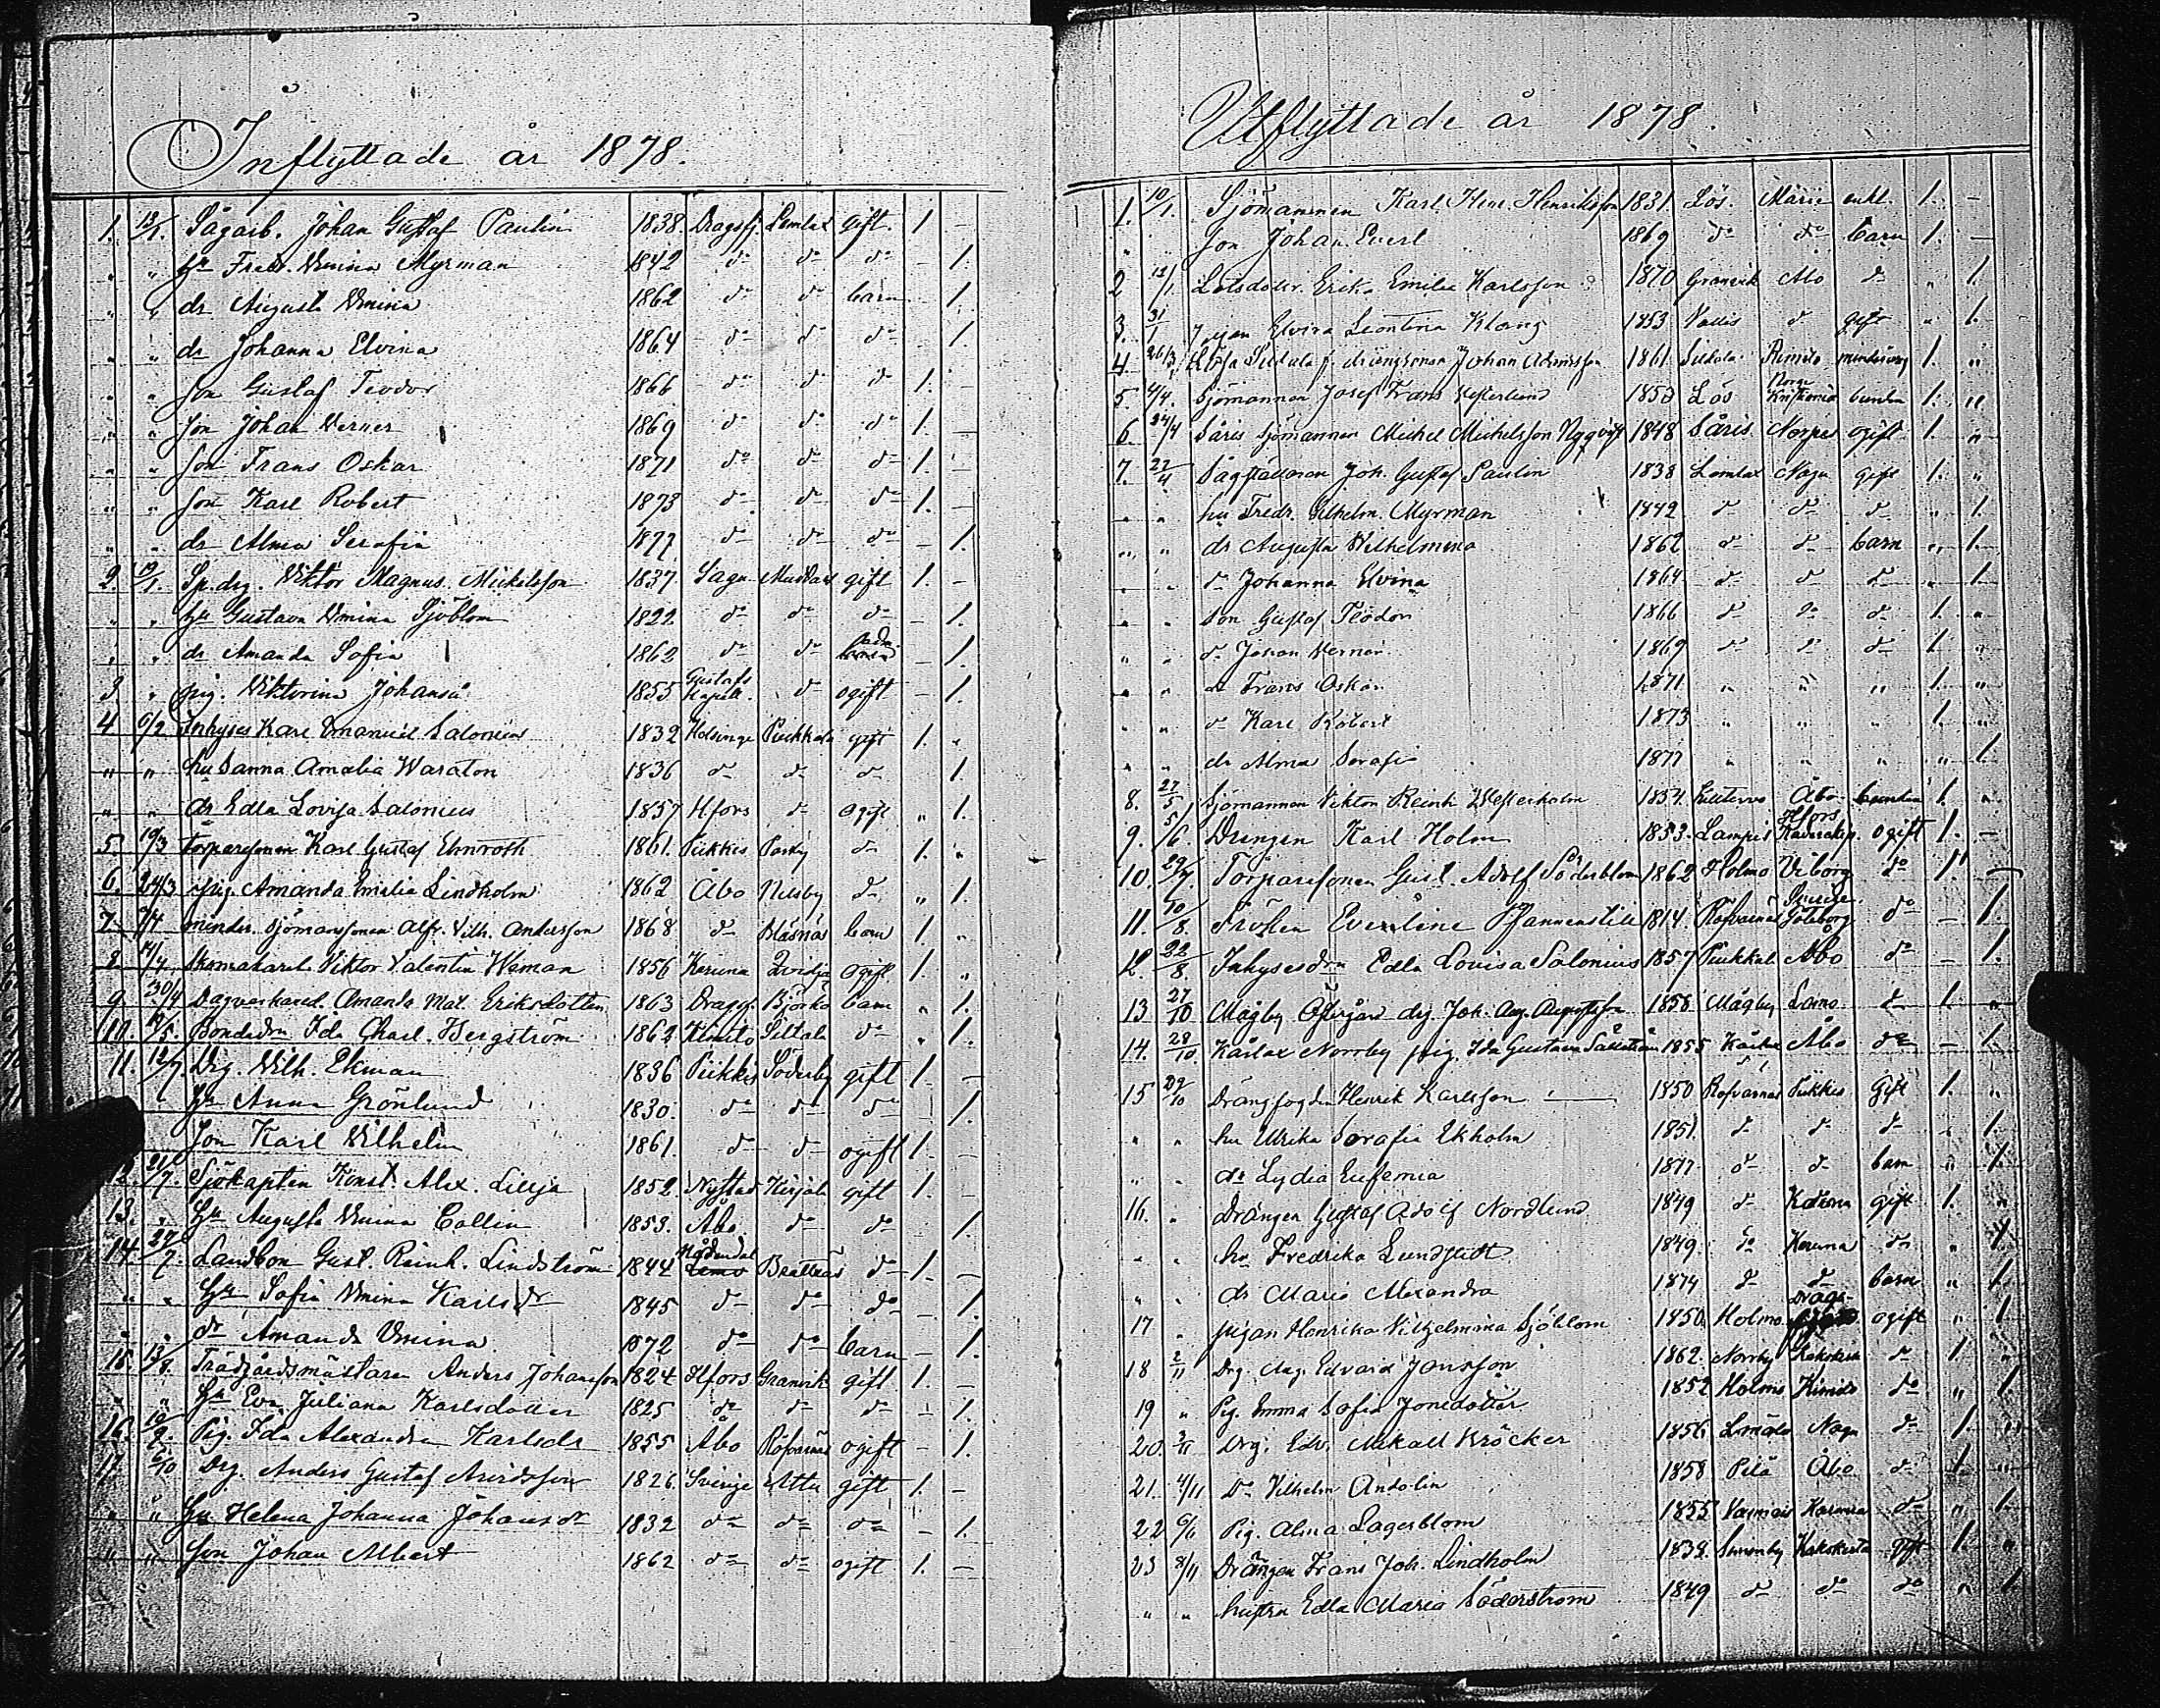 Inflyttade år 1878.
1. 13/1. Sågarb. Johan Gustaf Paulin 1838. Dragsfj. Lemlax gift. 1. –
„ „ hu Fredr. Vmina Myrman 1842 do do do – 1.
„ „ dr Augusta Vmina 1862 do do barn – 1.
„ „ dr Johanna Elvina 1864 do do do – 1
„ „ son Gustaf Teodor 1866 do do do 1. –
„ „ son Johan Verner 1869 do do do 1. –
„ „ son Frans Oskar 1871 do do do 1. –
„ „ son Karl Robert 1873 do do do 1. –
„ „ dr Alma Serafia 1877 do do do – 1.
2. 19/1. Sp.drg. Viktor Magnus Mickelsson 1837. Sagu gift 1. –
„ „ hu Gustava Vmina Sjöblom 1822 do do do – 1.
„ „ dr Amanda Sofia 1862 do do – 1.
3 „ pig. Viktorina 1855 Gustafs Kapell. do ogift – 1.
4 Inhyses Karl Emanuel Salonius 1832 Helsinge Piukkala gift 1. „
„ „ hu Sanna Amalia Waraton 1836 do do do 1.
„ „ dr Edla Lovisa Salonius 1857 Hfors do ogift „ 1.
5. 19/3 torparesonen Karl Gustaf Elmroth 1861. Piikkis do 1. „
6. 24/3 pig. Amanda Emilia Lindholm 1862 Åbo Nilsby do „ 1.
7. minder. sjömanssonen Alfr. Vilh. Andersson 1868 do Bläsnäs barn 1. „
8. Skomakarel. Viktor Valentin Weman 1856 Karuna Qvidja ogift 1. „
9. 30/4 Amanda Mat. Eriksdotter 1863 Dragsfj. Björkö barn „ 1.
10. Bondedrn Ida Charl. Bergström 1862 Kimito Siltala do „ 1.
11. 12/7. Drg. Vilh. Ekman 1836 Piikkis Söderby gift 1. –
hu Anna Grönlund 1830. do do do 1.
son Karl Vilhelm 1861. do do ogift 1. –
12. 21/7. Sjökapten Konst. Alex. Lilja 1852 Nystad Kirjala gift 1. –
13. „ hu Augusta Vmina Collin 1853. Åbo do do 1.
14. 27/7. Landbon Gust. Reinh. Lindström 1844 Nådendal Lemo Brattnäs do 1. –
„ „ hu Sofia Vmina Karlsdr 1845 do do do – 1.
„ „ dr Amanda Vmina 1872 do do barn – 1.
15. 13/8. Trädgårdsmästaren Anders Johansson 1824 Hfors Granvik gift 1. –
„ „ hu Eva Juliana Karlsdotter 1825 do do do – 1.
16. Pig. Ida Alexandra Karlsdr 1855 Åbo Röfvarnäs ogift – 1.
17 6/10 Drg. Anders Gustaf Arvidsson 1826. Sverige Attu gift 1. –
„ „ hu Helena Johanna Johansdr 1832 do do do – 1.
„ „ son Johan Albert 1862 do do ogift 1. –
Utflyttade år 1878.
1. 10/1. Sjömannen Karl Henr. Henriksson 1831. Lös. Märie enkl. 1. –
„ „ son Johan Evert 1869 do do barn 1. –
2 12/1. Lotsdottr. Erika Emilia Karlsson 1870 Granvik Åbo do „ 1.
3. 31/1 Elvira Leontina Klang 1853 do gift „ 1.
4. 26/3 drängsonen Johan 1861. Rimito 1. „
5. 4/4. Sjömannen Josef Frans Vesterlund Lös Norge Kristiania 1. „
6. 24/4 Såris Sjömannen Mickel Mickelsson Nyqvist 1848 Såris. Nerpes ogift. 1. „
7. 27/4 Joh. Gustaf Paulin 1838 Lemlax Nagu gift 1. „
„ „ hu Fredr. Vilhelm. Myrman 1842 do do do „ 1.
„ „ dr Augusta Wilhelmina 1862 do do barn „ 1.
„ „ do Johanna Elvina 1864 do do do „ 1.
„ „ son Gustaf Teodor 1866 do do do 1. „
„ „ do Johan Verner 1869 do do do 1. „
„ „ do Frans Oskar 1871 „ „ „ 1. „
„ „ do Karl Robert 1873 „ „ „ 1. „
„ „ dr Alma Serafia 1877 „ „ „ „ 1.
8. 27/5 Sjömannen Viktor Reinh. Vesterholm 1854. Åbo 1. „
9. 5/6. Drengen Karl Holm 1853. Lampis Hfors ogift 1. –
10. 29/7. Torparesonen Gust. Adolf Söderblom 1862 Holmo Viborg do 1. –
11. 10/8. Fröken Eveline Pfannenstill 1814. Rofvarnäs Sverige Göteborg do – 1.
12. 22/8. Inhysesdrn Edla Lovisa Salonius 1857 Piukkal. Åbo do – 1.
13 27/10 Mågby Östergård drg. Joh. Aug. Augustsson 1858 Mågby Lemo do 1. „
14. 28/10. Kärlax Norrby pig. Ida Gustava 1855 Kärlax Åbo do – 1.
15 29/10 Drängfogden Henrik Karlsson 1850 Rofvarnäs Piikkis Gift 1. „
„ „ hu Ulrika Serafia Ekholm 1851. do do do „ 1.
„ „ dr Lydia Eufemia 1877 do do barn „ 1.
16. „ Drängen Gustaf Adolf Nordlund 1849 do Karuna gift 1. „
„ „ hu Fredrika Lundstedt 1849. do Karuna do „ 1.
„ „ dr Maria Alexandra 1874 do do barn „ 1.
17 „ pigan Henrika Vilhelmina Sjöblom 1850 Holmo Drags- ogift „ 1.
18 2/11 Drg. Aug. Edvard Jonsson 1862. Norrby Kakskerta do 1. „
19 „ Pig. Emma Sofia Jonsdotter 1852 Holmo Kimito do „ 1.
20. Drg. Edv. Mikael Kröcker 1856. Nagu do 1. „
21. 4/11 Do Vilhelm Andelin 1858 Åbo do 1. „
22 6/11 Pig. Alma Lagerblom 1855 Karuna do „ 1.
23 8/11 Drängen Frans Joh. Lindholm 1839. Kakskerta gift 1. „
„ „ hustru Edla Maria Söderström 1849 do do do „ 1.